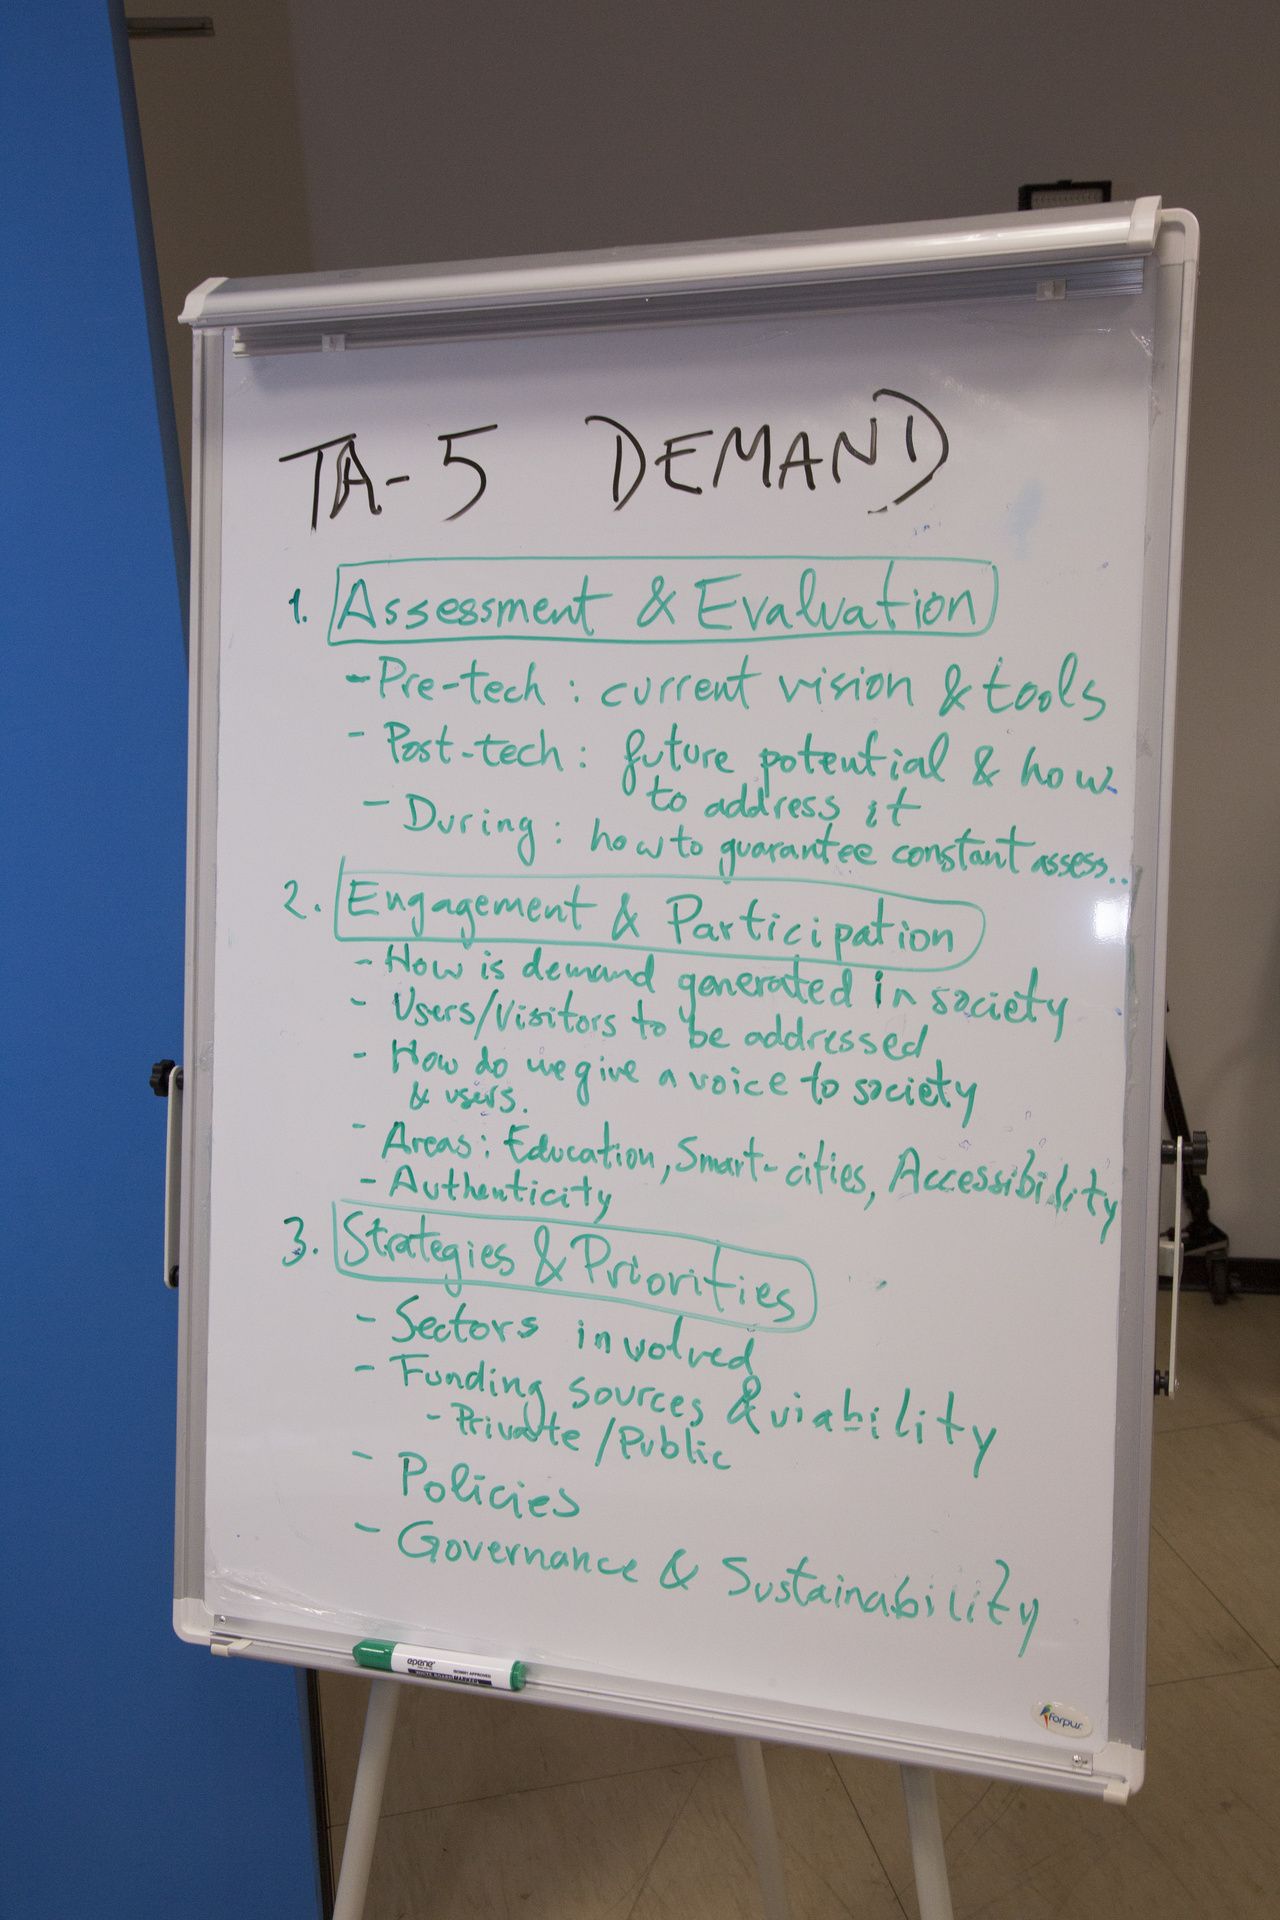 TA-5 DEMAND
1. Assessment & Evaluation
- Pre-tech : current vision & tools
- Post-tech : future potential & how
to address it
- During : how to guarantee constant assess..
2. Engagement & Participation
- How is demand generated in society
- Users/Visitors to be addressed
- How do we give a voice to society
& users.
- Areas : Education, Smart-cities, Accessibility
- Authenticity
3. Strategies & Priorities
- Sectors involved
- Funding sources & viability
- Private / Public
- Policies
- Governance & Sustainability
epene
forpus